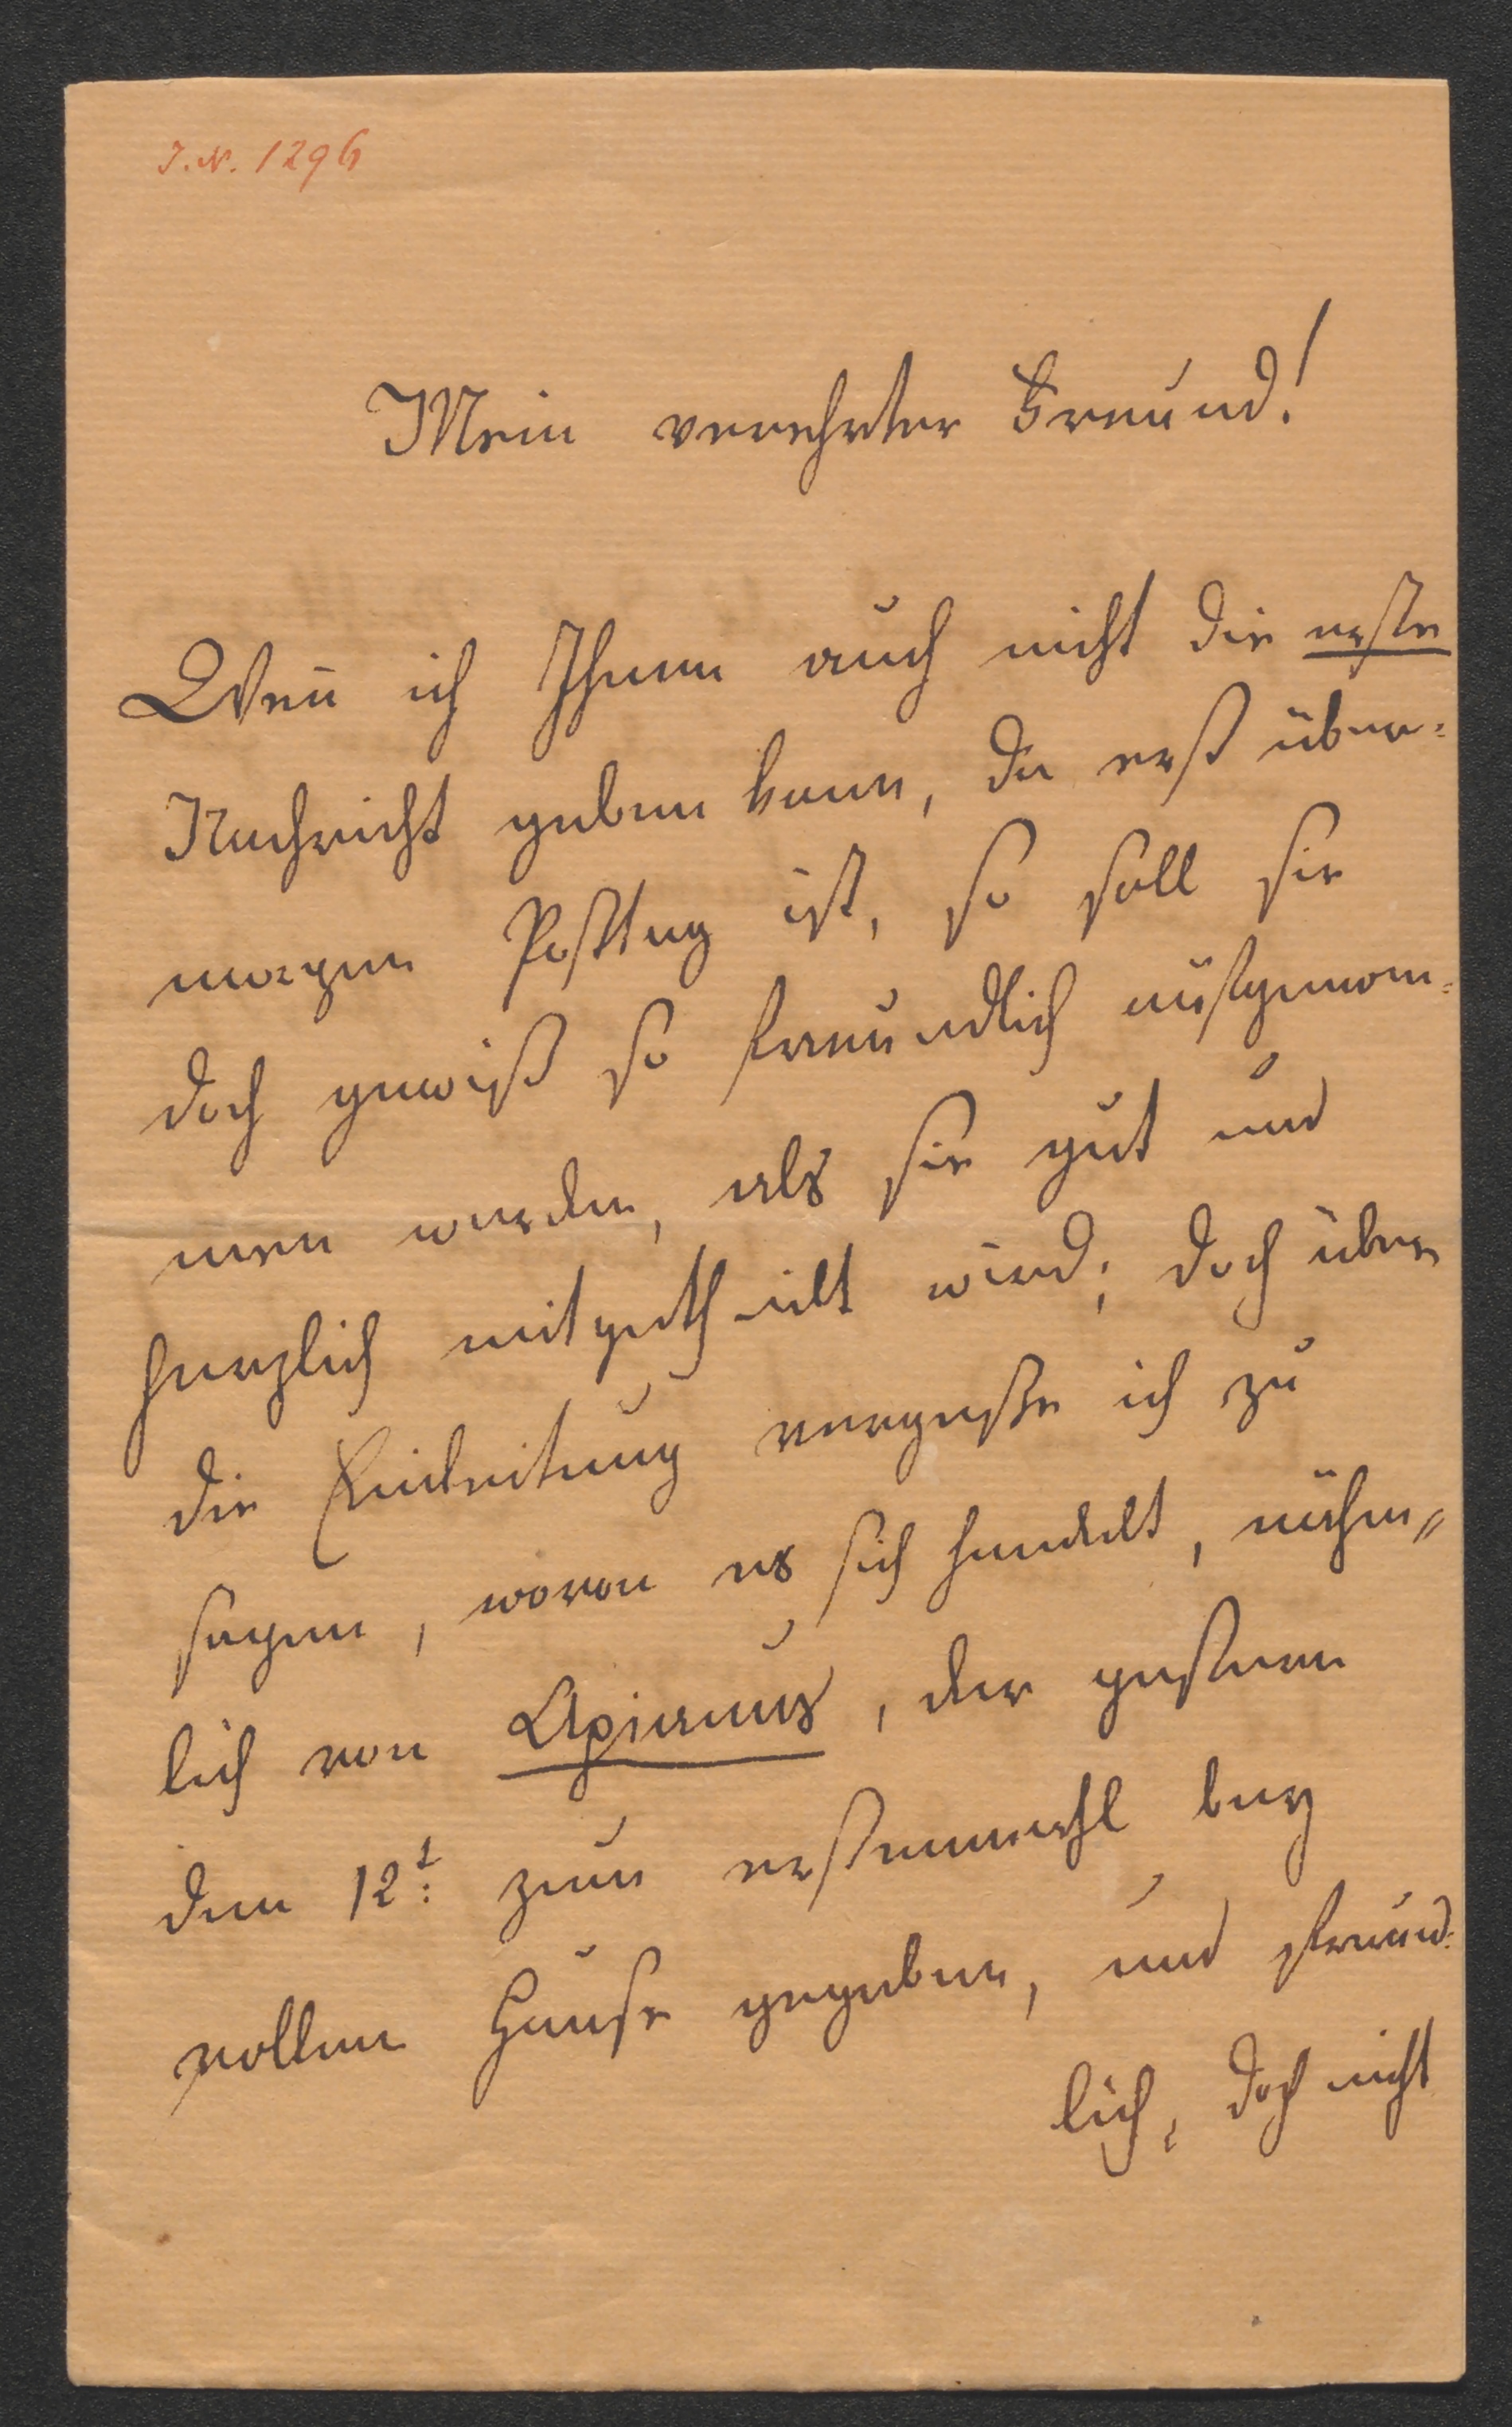 J. N. 1296
Mein verehrter Freund!
Weñ ich Ihnen auch nicht die erste
Nachricht geben kann, da erst über-
morgen Posttag ist, so soll sie
doch gewiß so freundlich aufgenom-
men werden, als sie gut und
herzlich mitgetheilt wird; doch über
die Einleitung vergeße ich zu
sagen, wovon es sich handelt, nähm-
lich von Apianus, der gestern
den 12t: zum erstenmahl bey
vollem Hause gegeben, und freund-
lich, doch nicht